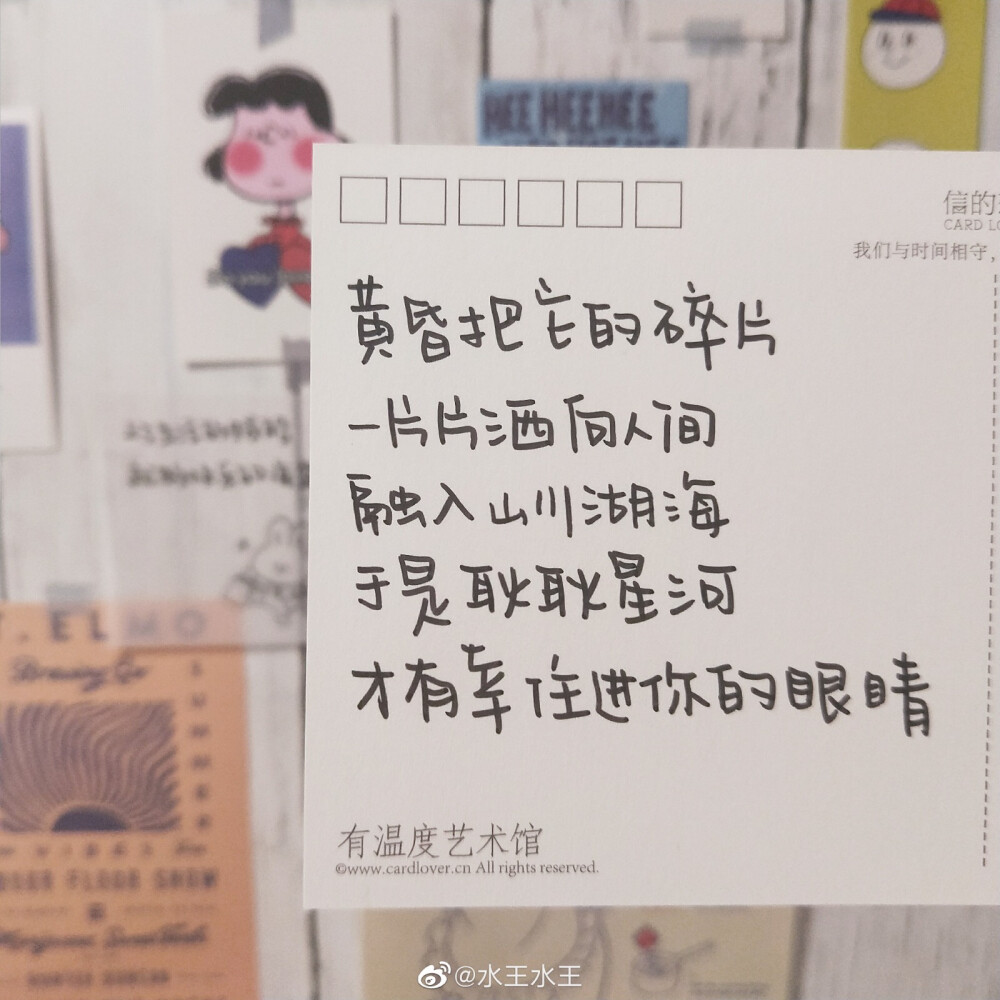 HEE HEEHEE
信的
CARD LO
我们与时间相守,
黄昏把它的碎片
一片片洒向人间
融入山川湖海
于是耿耿星河
才有幸住进你的眼睛
有温度艺术馆
©www.cardlover.cn All rights reserved.
@水王水王